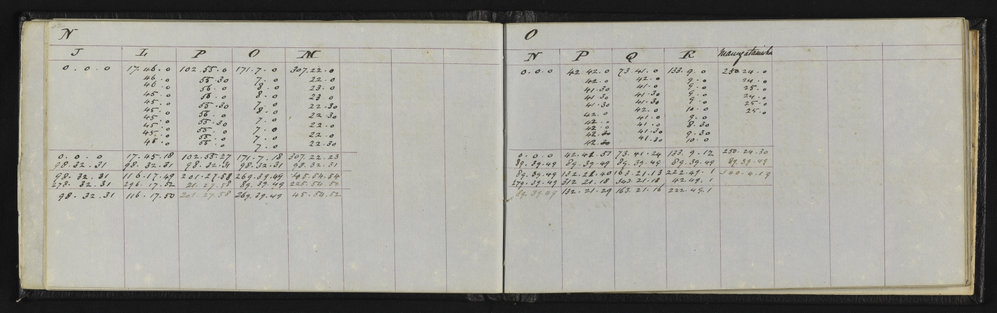 N
J L P O M
0.0.0 17.46.0 102.55.0 171.7.0 307.22.0
46.0 55.30 7.0 22.0
46.0 56.0 8.0 23.0
45.0 56.0 8.0 23.0
45.0 55.30 7.0 22.30
45.0 56.0 8.0 22.0
45.0 55.30 7.0 22.30
45.0 55.0 7.0 22.0
45.0 55.0 7.0 22.0
46.0 55.0 7.0 22.30
0.0.0 17.45.18 102.55.27 171.7.18 307.22.23
98.32.31 98.32.31 98.32.31 98.32.31 98.32.31
98.32.31 116.17.49 201.27.58 269.39.49
278.32.31 296.17.52 21.27.58 89.39.49 225.54.52
98.32.31 116.17.50 201.27.58 269.39.49 45.54.52
O
N P Q R
0.0.0 42.42.0 73.41.0 133.9.0 250.24.0
42.0 42.0 10.0 24.0
41.30 41.0 9.0 25.0
41.30 41.30 9.0 24.0
41.30 41.30 9.0 25.0
42.0 42.0 10.0 25.0
42.0 41.0 9.0
42.0 41.0 8.30
42.0 41.30 9.30
42.30 41.30 10.0
0.0.0 42.41.51 73.41.24 133.9.12 250.24.30
89.39.49 89.39.49 89.39.49 89.39.49 89.39.49
89.39.49 132.21.40 163.21.13 222.49.1 340.4.19
279.39.49 312.21.18 343.21.18 42.49.1
89.39.49 132.21.29 163.21.16 222.49.1